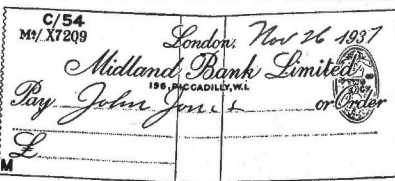 C/54
Mt/ X7209
London, Nov 26 1937
Midland Bank Limited
196, PICCADILLY, W.1.
Pay John Jones or Order
£
M